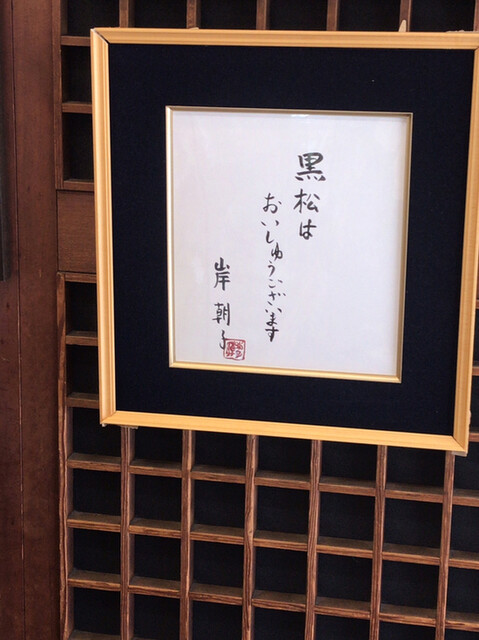 黒松は
おいしゅうございます
岸朝子